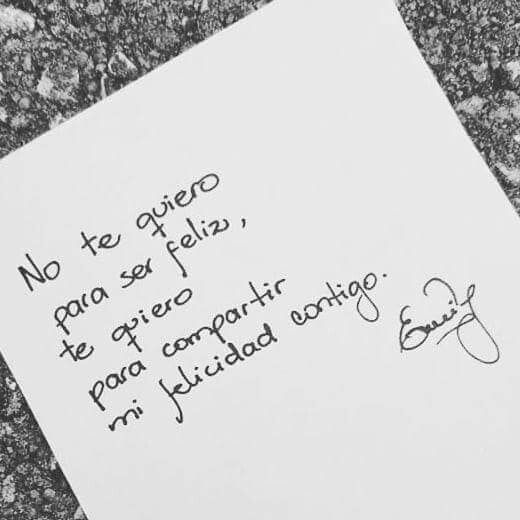 No te quiero
para ser feliz,
te quiero
para compartir
mi felicidad contigo.